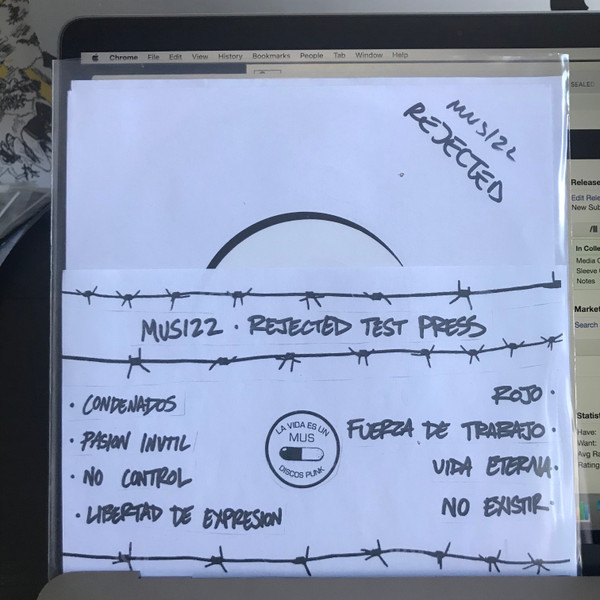 Chrome File Edit View History Bookmarks People Tab Window Help
MUS122
REJECTED
MUS122 · REJECTED TEST PRESS
· CONDENADOS
· PASION INUTIL
· NO CONTROL
· LIBERTAD DE EXPRESION
LA VIDA ES UN
MUS
DISCOS PUNK
ROJO ·
FUERZA DE TRABAJO ·
VIDA ETERNA ·
NO EXISTIR ·
Release
Edit Rele
New Sub
In Colle
Media C
Sleeve
Notes
Market
Search
Statist
Have:
Want:
Avg Ra
Rating